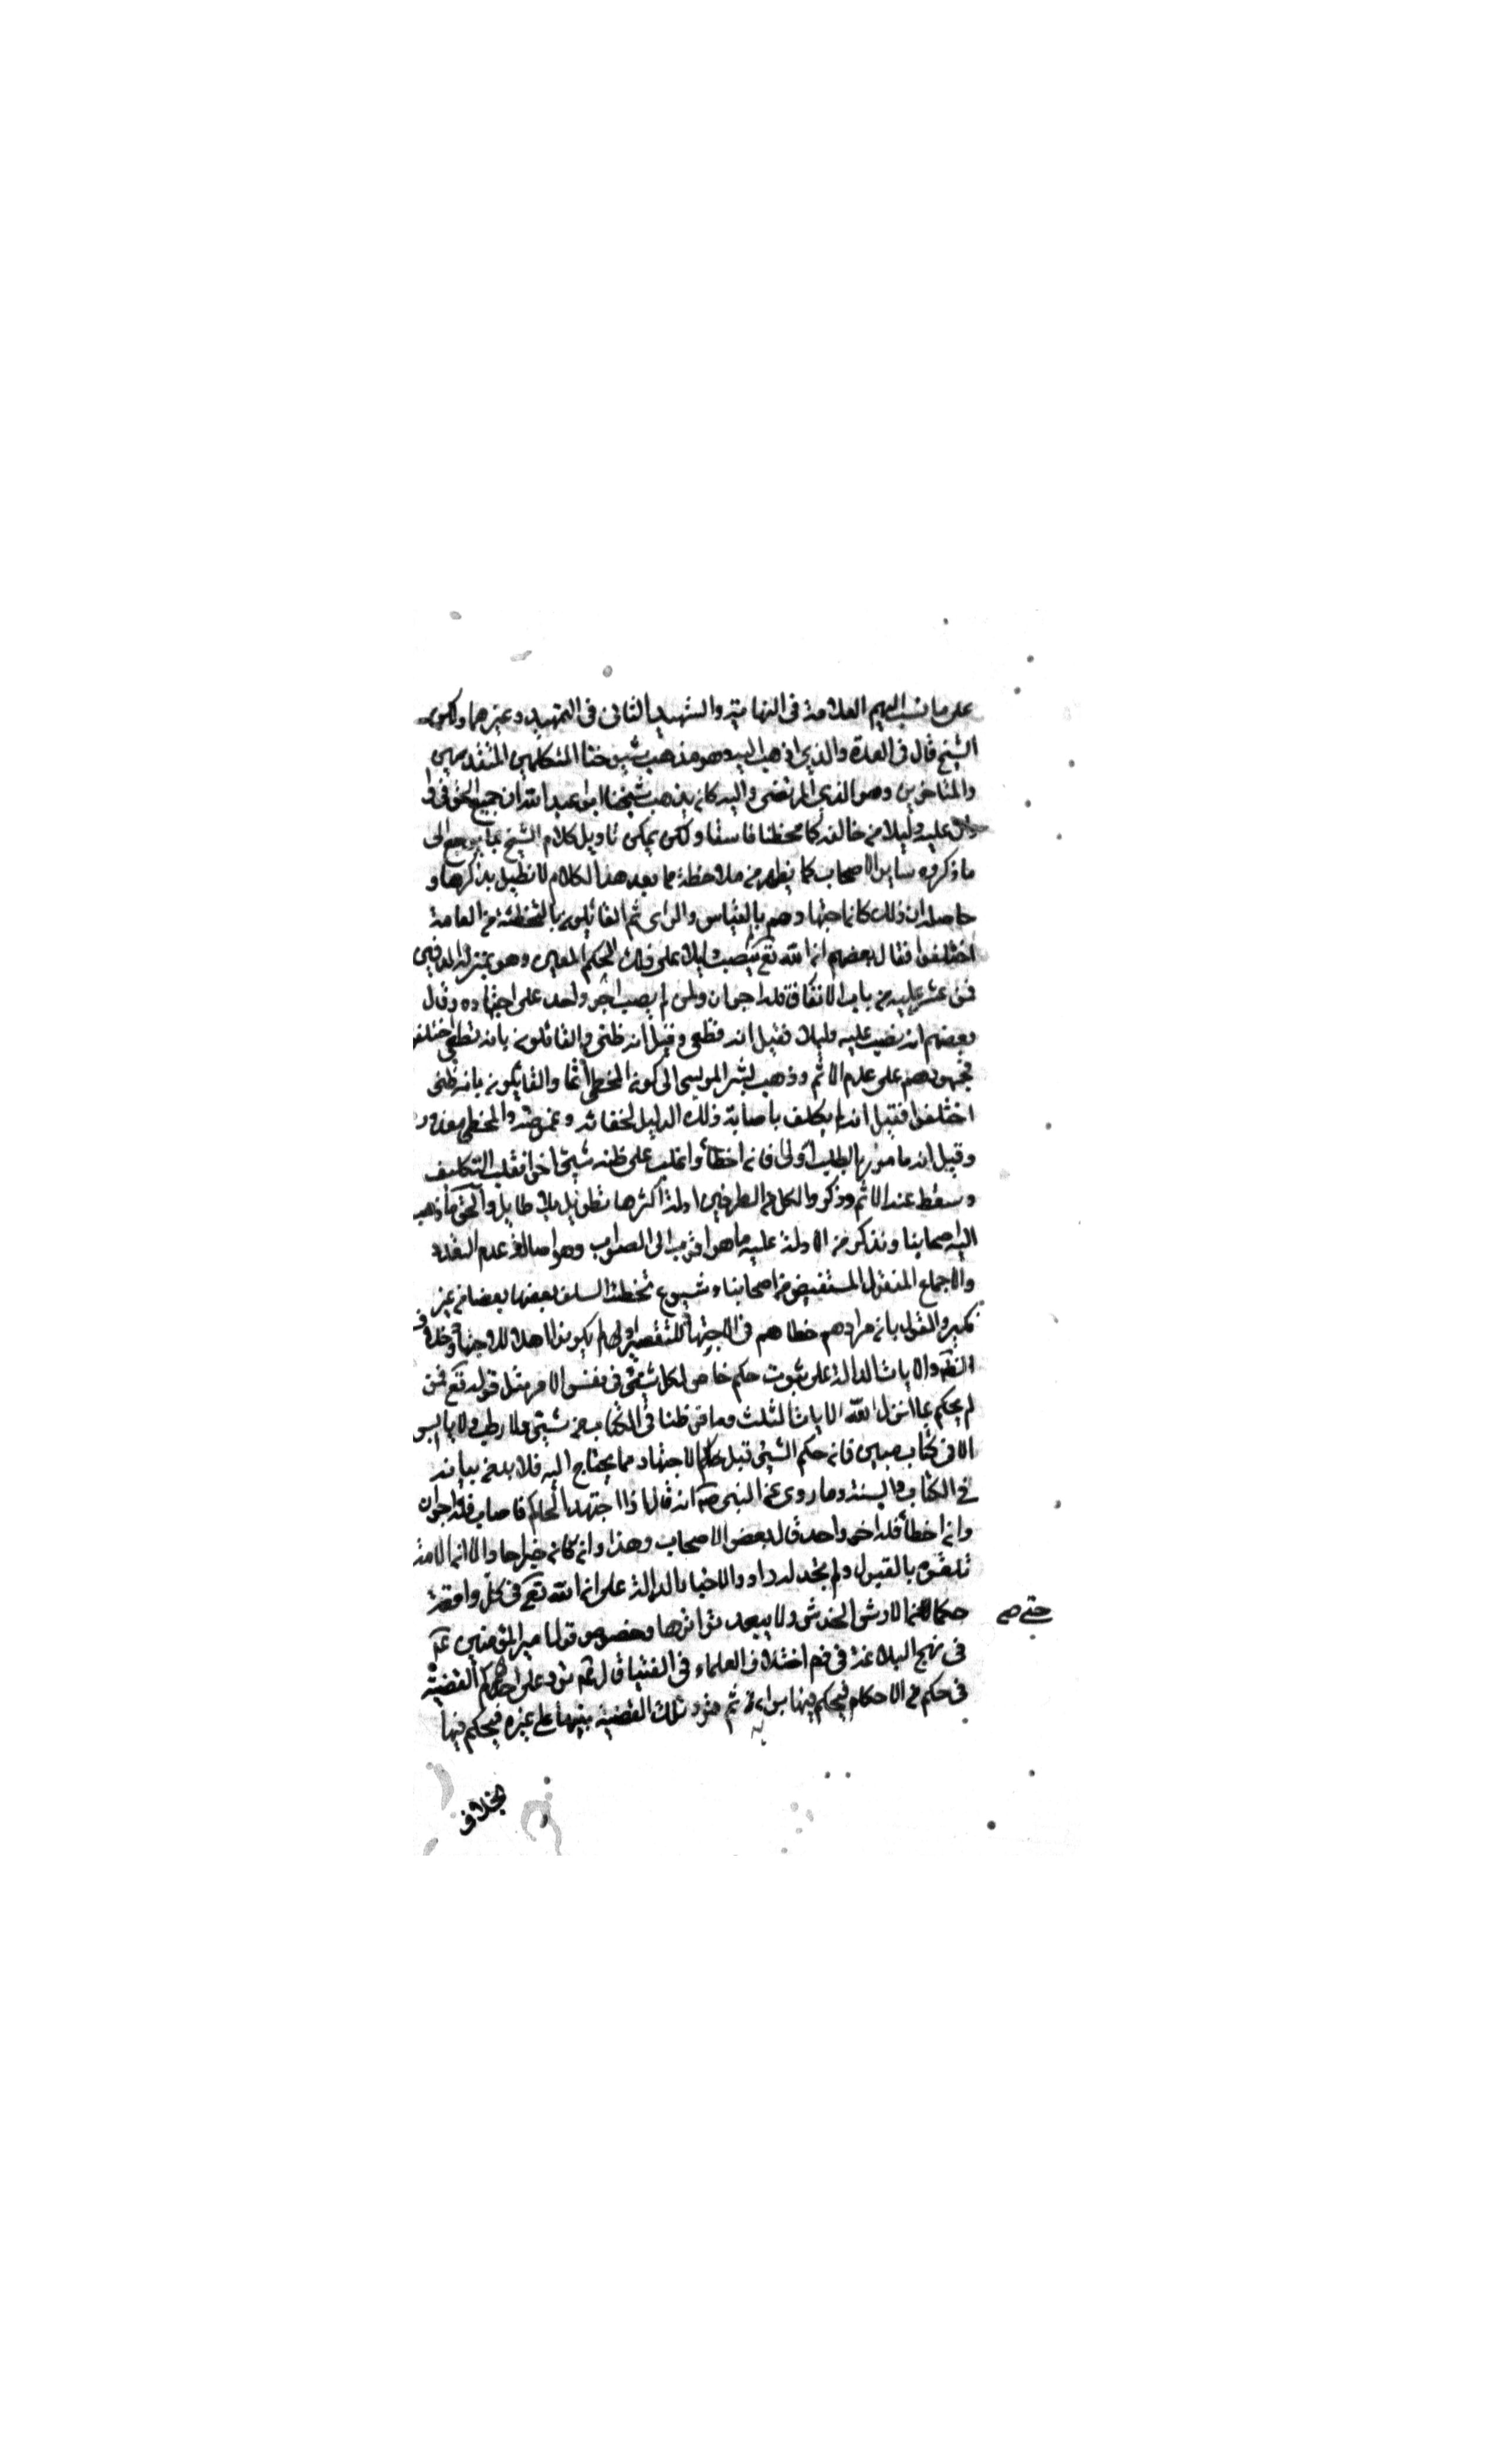 على ما نسب اليهم العلامة فى النهاية والشهيد الثانى فى التمهيد وغيرهما ولكن
الشيخ قال فى العدة والذى اذهب اليه وهو مذهب شيوخنا المتكلمين المتقدمين
والمتاخرين وهو الذى المرتضى واليه كان يذهب شيخنا ابو عبد الله ان جميع الحق فى
عليه دليلا من خالفه كان مخطئا فاسقا ولكن يمكن تاويل كلام الشيخ بما يرجع الى
ما ذكروه ساير الاصحاب كما يظهر من ملاحظة ما بعد هذا الكلام لا نطيل بذكرها و
حاصله ان ذلك كان اجتهادهم بالقياس والراى ثم القائلون بالتخطئة من العامة
اختلفوا فقال بعضهم ان الله تع لم ينصب دليلا على ذلك الحكم المعين وهو بمنزلة الدفين
فمن عثر عليه من باب الاتفاق فله اجران ولمن لم يصب اجر واحد على اجتهاده وقال
بعضهم انه نصب عليه دليلا فقيل انه قطعى وقيل انه ظنى والقائلون بانه قطعى اختلفوا
فجمهورهم على عدم الاثم وذهب بشر المريسى الى كون المخطى اثما والقائلون بانه ظنى
اختلفوا فقيل انه لم يكلف باصابة ذلك الدليل لخفائه وغموضه والمخطى معذور
وقيل انه مامور بالطلب اولا فان اخطأ واغلب على ظنه شيئ اخر انقلب التكليف
وسقط عنه الاثم وذكروا لكل من الطرفين ادلة اكثرها تطويل بلا طايل والحق ما ذهب
اليه اصحابنا ونذكر من الادلة عليه ما هو اقرب الى الصواب وهو اصالة عدم التعدد
والاجماع المنقول المستفيض من اصحابنا وشيوع تخطئة السلف بعضها بعضا من غير
نكير والقول بان مرادهم خطاهم فى الاجتهاد للتقصير او لم يكونوا اهلا للاجتهاد خلاف
الظ والايات الدالة على ثبوت حكم خاص لكل شيئ فى نفس الامر مثل قوله تع فمن
لم يحكم بما انزل الله الايات الثلث وما فرطنا فى الكتاب من شيئ ولا رطب ولا يابس
الا فى كتاب مبين فان حكم الشيئ قبل الاجتهاد مما يحتاج اليه فلا بد من بيانه
فى الكتاب والسنة وما روى عن النبى ص انه قال اذا اجتهد الحاكم فاصاب فله اجران
وان اخطأ فله اجر واحد قال بعض الاصحاب وهذا وان كان خبرا واحدا الا ان الامة
تلقته بالقبول ولم نجد له رادا والاخبار الدالة على ان الله تع فى كل واقعة
حكما الارش الخدش ولا يبعد تواترها وخصوص قول امير المؤمنين ع
حتى صح
فى نهج البلاغة فى ذم اختلاف العلماء فى الفتيا قال ع ترد على احدهم القضية
فى حكم من الاحكام فيحكم فيها برايه ثم ترد تلك القضية بعينها على غيره فيحكم فيها
بخلاف